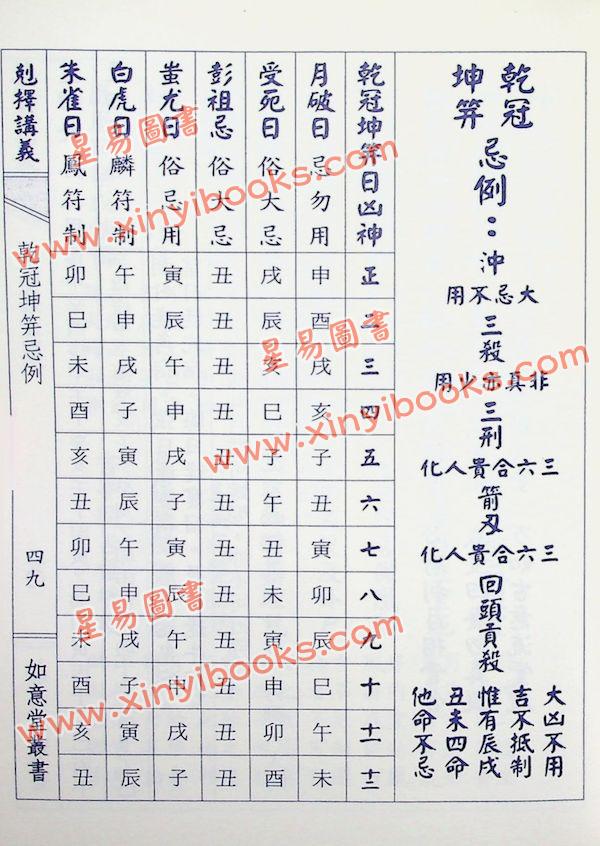 乾冠
坤笄
忌例：沖
大忌不用
三殺
非真亦少用
三刑
三六合貴人化
箭刃
三六合貴人化
回頭貢殺
大凶不用
吉不抵制
惟有辰戌
丑未四命
他命不忌
乾冠坤笄日凶神 正 二 三 四 五 六 七 八 九 十 十一 十二
月破日忌勿用 申 酉 戌 亥 子 丑 寅 卯 辰 巳 午 未
受死日俗大忌 戌 辰 亥 巳 子 午 丑 未 寅 申 卯 酉
彭祖忌俗大忌 丑 丑 丑 丑 丑 丑 丑 丑 丑 丑 丑 丑
蚩尤日俗忌用 寅 辰 午 申 戌 子 寅 辰 午 申 戌 子
白虎日麟符制 午 申 戌 子 寅 辰 午 申 戌 子 寅 辰
朱雀日鳳符制 卯 巳 未 酉 亥 丑 卯 巳 未 酉 亥 丑
剋擇講義
乾冠坤笄忌例
四九
如意堂叢書
星易圖書
www.xinyibooks.com
星易圖書
www.xinyibooks.com
星易圖書
www.xinyibooks.com